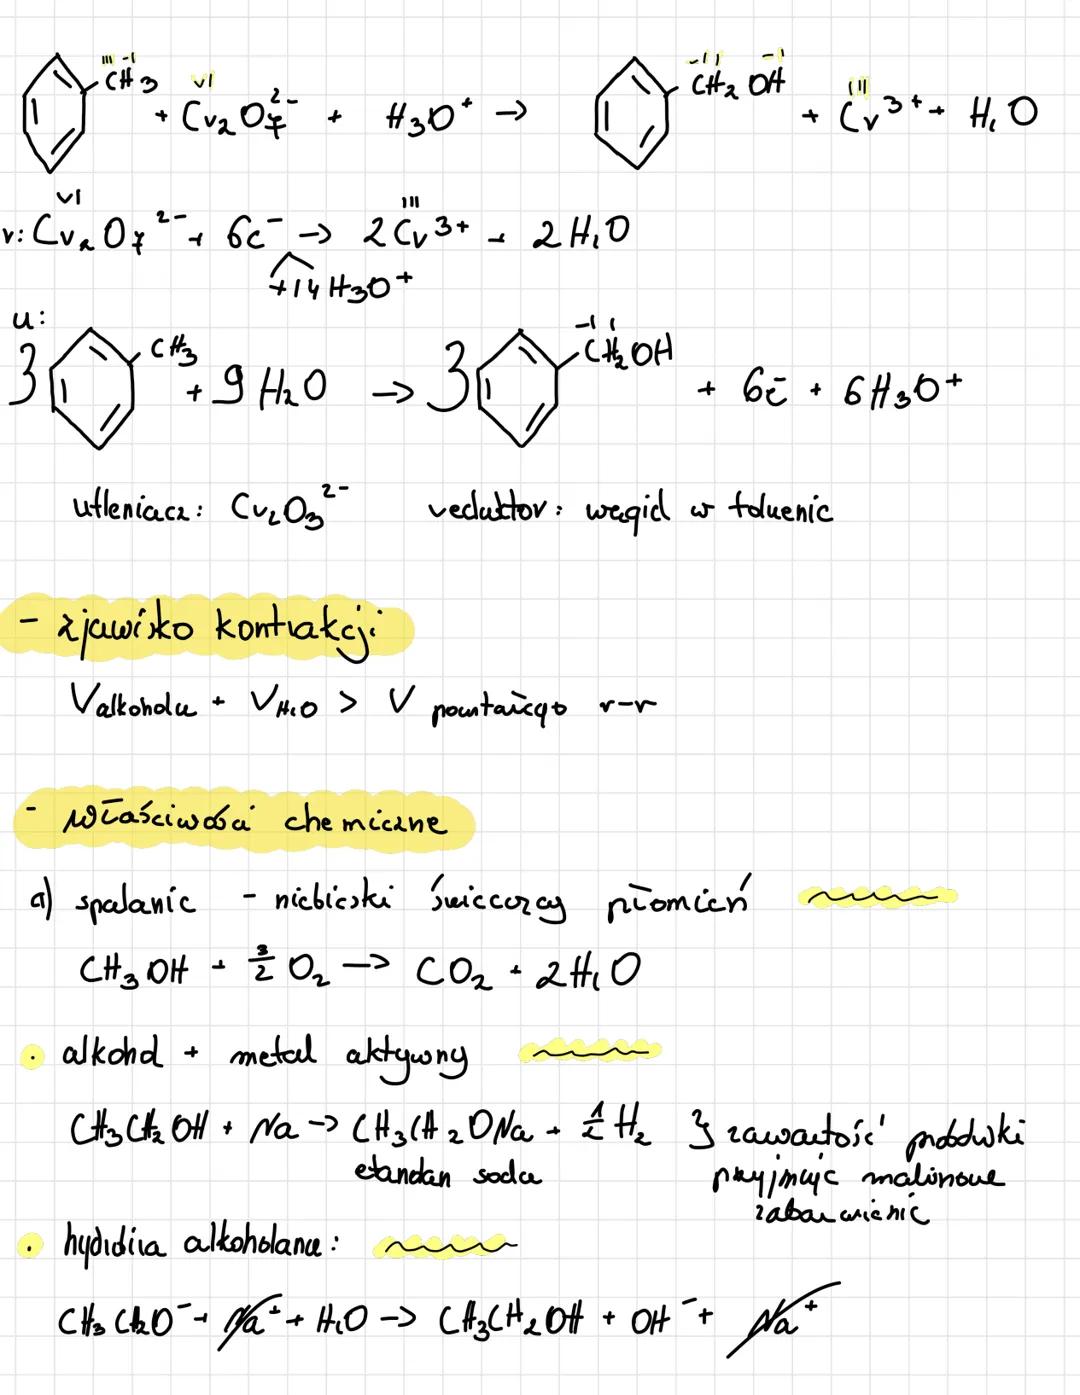 III -I
CH3 + Cr2O7^2- + H3O+ → CH2OH + Cr^3+ + H2O
VI III
r: Cr2O7^2- + 6e- → 2Cr^3+ + 2H2O
+14H3O+
u:
3 CH3 + 9H2O → 3 CH2OH + 6e- + 6H3O+
utleniacz: Cr2O3^2- reduktor: węgiel w toluenie
- zjawisko kontrakcji
Valkoholu + VH2O > V powstałego r-r
- właściwości chemiczne
a) spalanie - niebieski świecący płomień
CH3OH + 3/2 O2 → CO2 + 2H2O
• alkohol + metal aktywny
CH3CH2OH + Na → CH3CH2ONa + 1/2 H2 } zawartość probówki
etanolan sodu przyjmuje malinowe
zabarwienie
• hydroliza alkoholanu:
CH3CH2O- + Na+ + H2O → CH3CH2OH + OH- + Na+